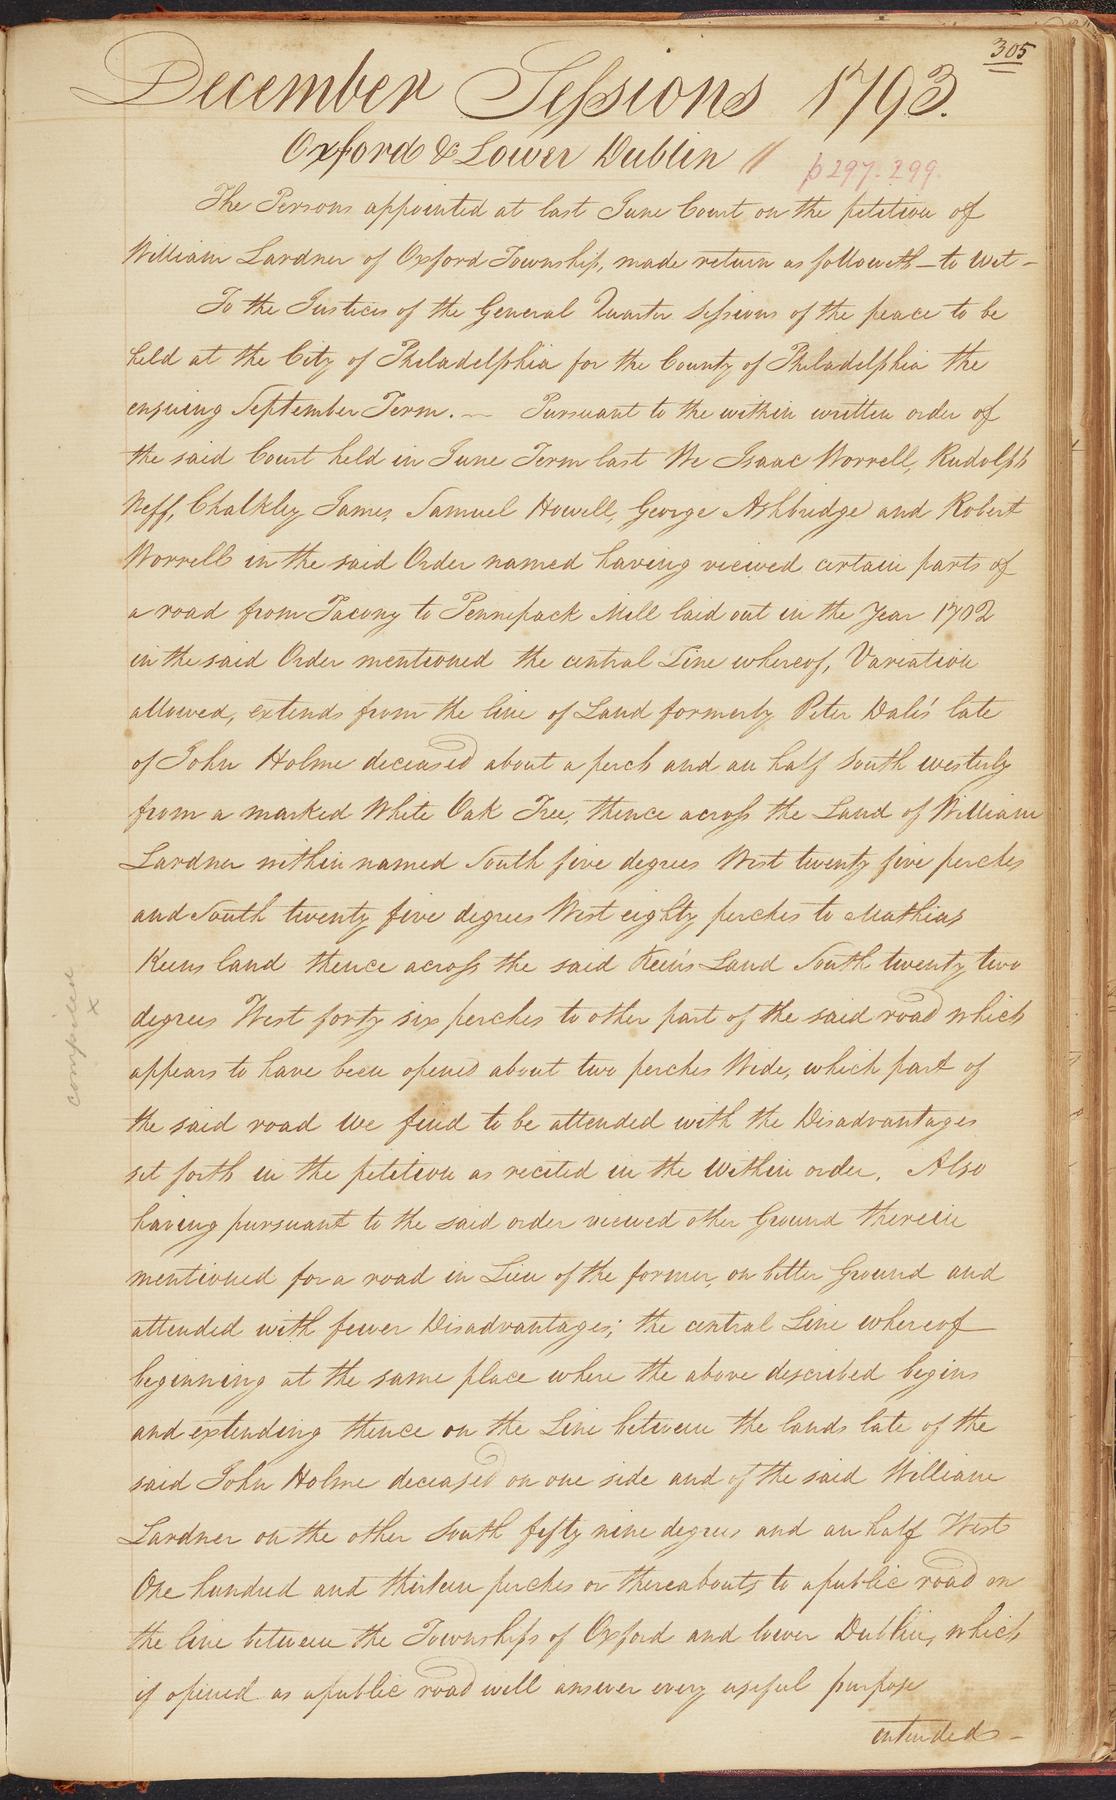 305
December Sessions 1793.
Oxford & Lower Dublin //
p 297. 299.
The Persons appointed at last June Court on the petition of
William Lardner of Oxford Township, made return as followeth – to Wit –
To the Justices of the General Quarter Sessions of the peace to be
held at the City of Philadelphia for the County of Philadelphia the
ensuing September Term. — Pursuant to the within written order of
the said Court held in June Term last We Isaac Worrell, Rudolph
Neff, Chalkley James, Samuel Howell, George Ashbridge and Robert
Worrell in the said Order named having viewed certain parts of
a road from Tacony to Pennepack Mill laid out in the Year 1702
in the said Order mentioned the central Line whereof, Variation
allowed, extends from the line of Land formerly Peter Dale's late
of John Holme deceased about a perch and an half South westerly
from a marked White Oak Tree, thence across the Land of William
Lardner within named South five degrees West twenty five perches
and South twenty five degrees West eighty perches to Mathias
Keens land thence across the said Keen's Land South twenty two
degrees West forty six perches to other part of the said road which
appears to have been opened about two perches Wide, which part of
the said road We find to be attended with the Disadvantages
set forth in the petition as recited in the Within order. Also
having pursuant to the said order viewed other Ground therein
mentioned for a road in Lieu of the former, on better Ground and
attended with fewer Disadvantages; the central Line whereof
beginning at the same place where the above described begins
and extending thence on the Line between the lands late of the
said John Holme deceased on one side and of the said William
Lardner on the other South fifty nine degrees and an half West
One hundred and thirteen perches or thereabouts to a public road on
the line between the Townships of Oxford and lower Dublin, which
if opened as a public road will answer every useful purpose
intended –
compiled
x